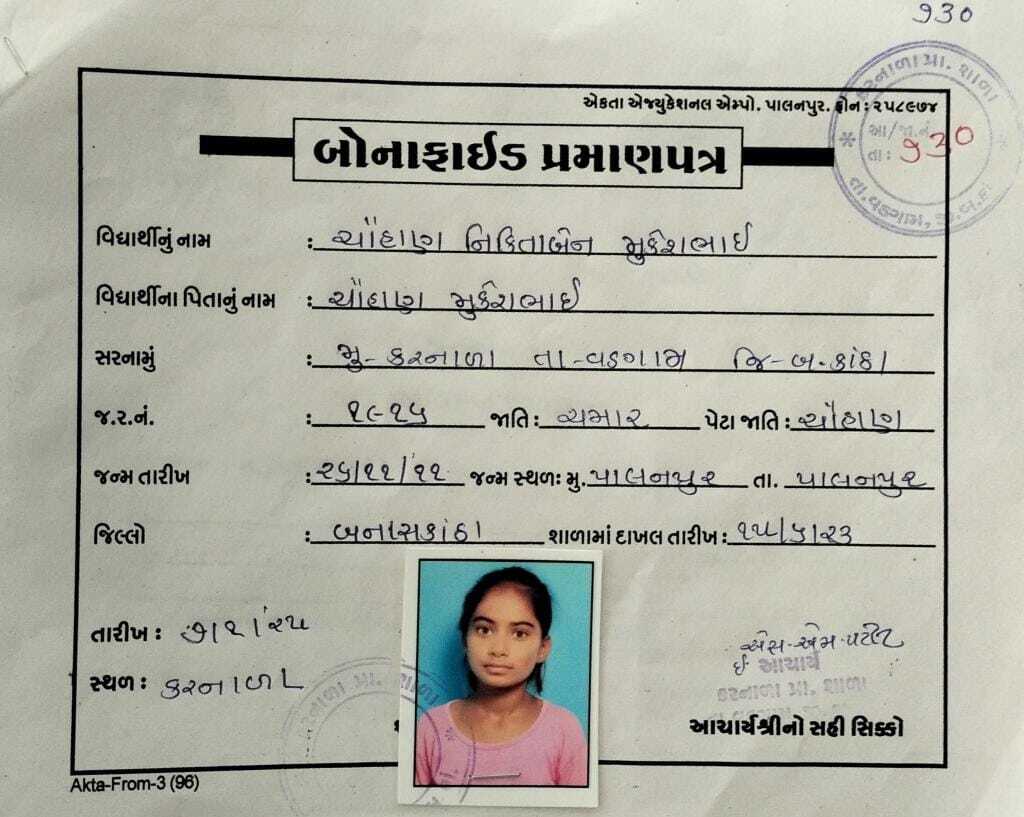 930
કરનાળા પ્રા. શાળા
આ/જા.નં. 930
તા:
તા.વડગામ, જી.બ.કાં
એકતા એજ્યુકેશનલ એમ્પો. પાલનપુર. ફોન : ૨૫૮૯૭૪
બોનાફાઈડ પ્રમાણપત્ર
વિદ્યાર્થીનું નામ : ચૌહાણ નિકિતાબેન મુકેશભાઈ
વિદ્યાર્થીના પિતાનું નામ : ચૌહાણ મુકેશભાઈ
સરનામું : મુ- કરનાળા તા-વડગામ જિ-બ.કાંઠા
જ.ર.નં. : ૧૯૧૫ જાતિ : ચમાર પેટા જાતિ : ચૌહાણ
જન્મ તારીખ : ૨૬/૧૨/૧૨ જન્મ સ્થળ: મુ. પાલનપુર તા. પાલનપુર
જિલ્લો : બનાસકાંઠા શાળામાં દાખલ તારીખ : ૧૫/૬/૨૩
તારીખ :
સ્થળ : કરનાળા
એસ.એમ.પટેલ
ઈ આચાર્ય
કરનાળા પ્રા. શાળા
આચાર્યશ્રીનો સહી સિક્કો
કરનાળા પ્રા. શાળા
Akta-From-3 (96)